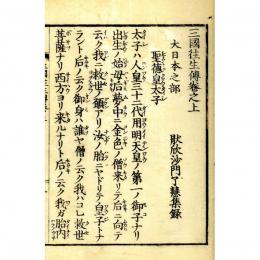 三國往生傳卷之上
大日本之部
欣沙門了慧集録
聖德皇太子
太子ハ人皇三十二代用明天皇ノ第一ノ御子ナリ
出生ノ始母后夢中ニ金色ノ僧來リテ后ニ向テ
云ク我ニ救世ノ願アリ汝ノ胎ニヤドリテ皇子トナ
ラント后ノ云ク御身ハ誰ゾ僧ノ云ク我ハコレ救世
菩薩ナリ西方ヨリ来ルナリト后ノ云ク我ガ胎内